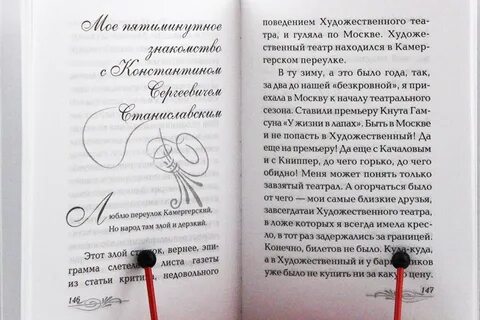 Мое пятиминутное
знакомство
с Константином
Сергеевичем
Станиславским
Люблю переулок Камергерский,
Но народ там злой и дерзкий.
Этот злой вернее, эпи-
грамма слетела листа газеты
из статьи критика, недовольного
146
поведением Художественного теа-
тра, и гуляла по Москве. Художе-
ственный театр находился в Камер-
герском переулке.
В ту зиму, а это было года, так,
за два до нашей «безкровной», я при-
ехала в Москву к началу театрального
сезона. Ставили премьеру Кнута Гам-
суна «У жизни в лапах». Быть в Москве
и не попасть в Художественный! Да
еще на премьеру! Да еще с Качаловым
и с Книппер, до чего горько, до чего
обидно! Меня может понять только
завзятый театрал. А огорчаться было
от чего — мои самые близкие друзья,
завсегдатаи Художественного театра,
в ложе которых я всегда имела крес-
ло, в тот раз задержались за границей.
Конечно, билетов не было. Куда-куда,
а в Художественный и у
уже было не купить ни за какую цену.
147